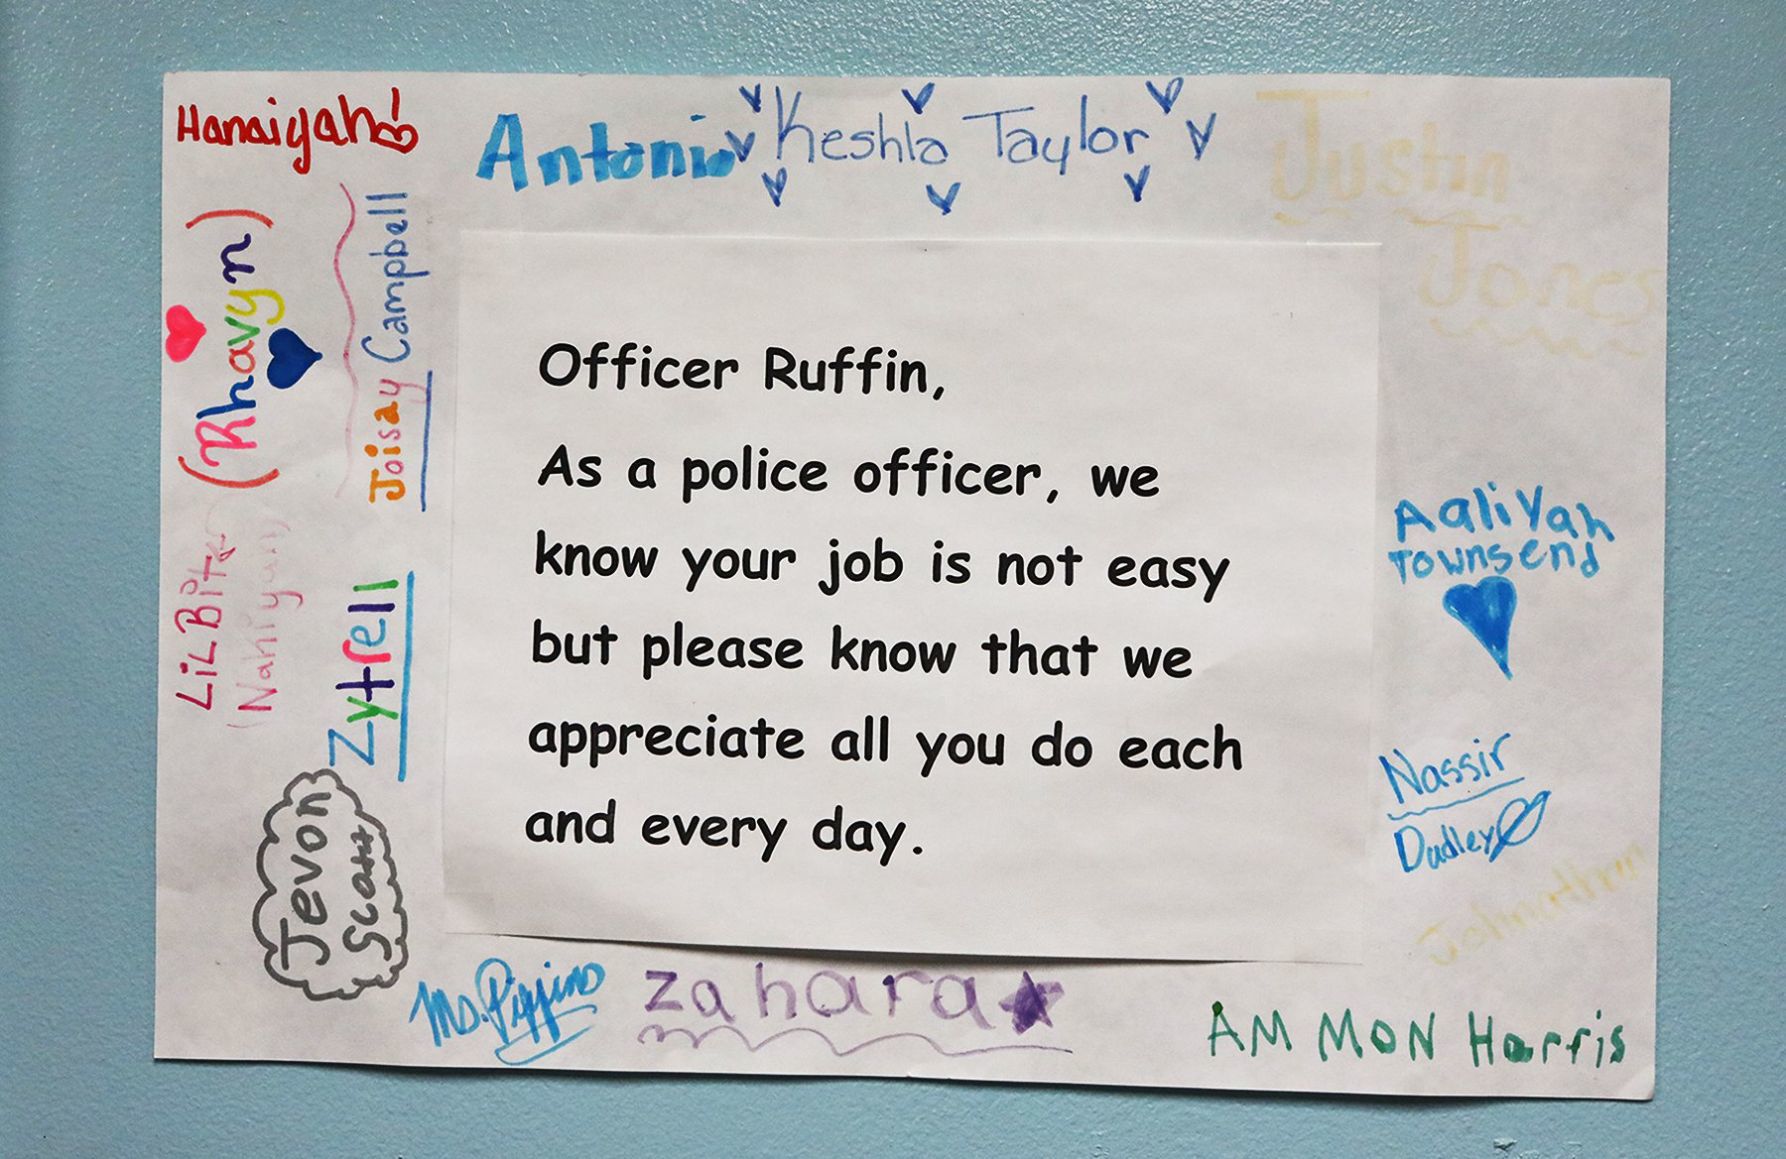 Hanaiyah
Antonio
Keshla Taylor
Justin
Jones
(Rhavyn)
Joisay Campbell
Officer Ruffin,
As a police officer, we
know your job is not easy
but please know that we
appreciate all you do each
and every day.
LiLBit
(Nahryah)
Zytrell
Jevon
Scott
Aaliyah
Townsend
Nassir
Dudley
Johnathan
Ms. Pippins
zahara
AMMON Harris